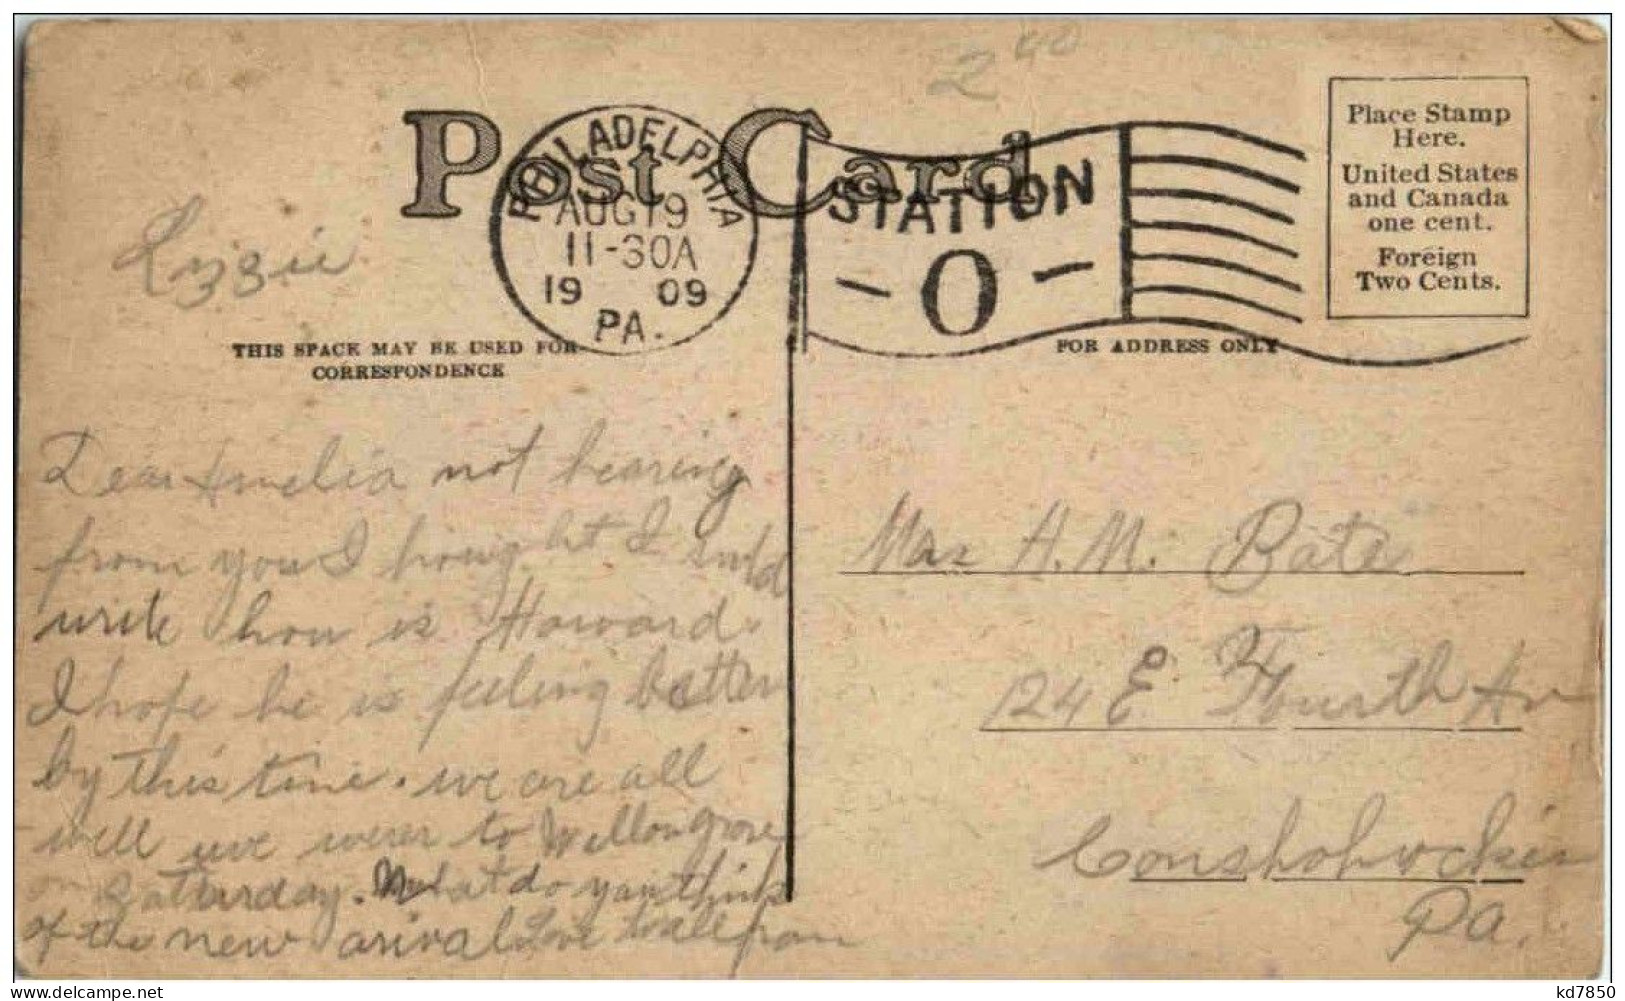 2⁰⁰
Post Card
PHILADELPHIA
AUG 19
11-30A
19 09
PA.
STATION
- O -
Place Stamp
Here.
United States
and Canada
one cent.
Foreign
Two Cents.
Lizzie
THIS SPACE MAY BE USED FOR
CORRESPONDENCE
FOR ADDRESS ONLY
Dear Amelia not hearing
from you I thought I would
write how is Howard.
I hope he is feeling better
by this time. we are all
well we were to Willow grove
on Satturday. What do you think
of the new arival Love to all from
Mrs H. M. Bate
124 E. Fourth Av
Conshohocken
Pa.
www.delcampe.net
kd7850